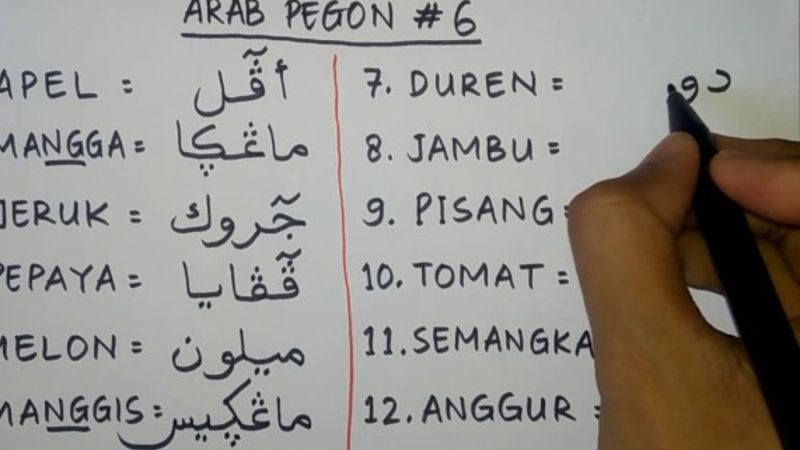 ARAB PEGON # 6
APEL = أڤل
MANGGA = ماڠڮا
JERUK = جروك
PEPAYA = ڤڤايا
MELON = ميلون
MANGGIS = ماڠڮيس
7. DUREN = دو
8. JAMBU =
9. PISANG =
10. TOMAT =
11. SEMANGKA
12. ANGGUR =